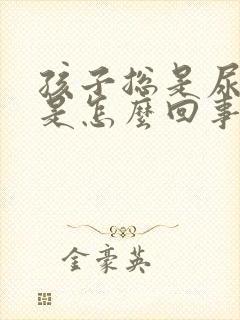 孩子总是尿
是怎麽回事
金豪英